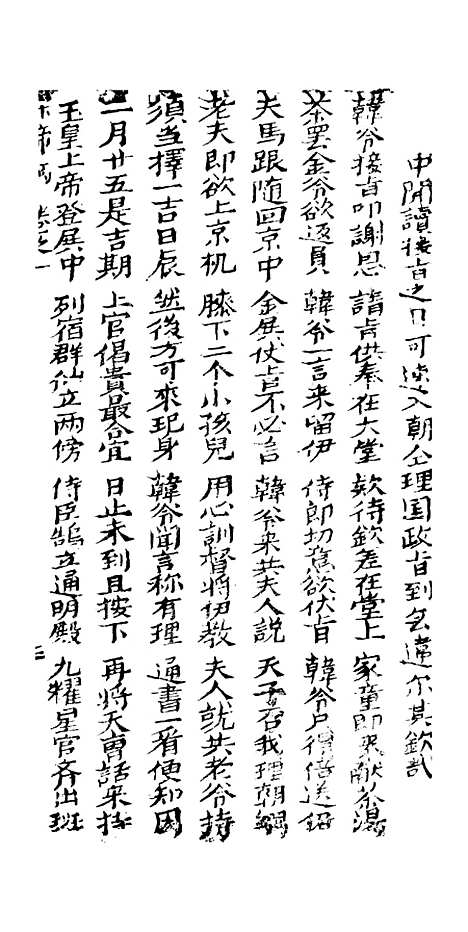 中開讀接旨之日可速入朝仝理国政旨到莫違尔其欽哉
韓爷接旨叩謝恩 請旨供奉在大堂 款待欽差在堂上 家童即來献茶湯
茶罢金爷欲返員 韓爷一言来留伊 侍郎切意欲伏旨 韓爷户禮倍送
夫馬跟随回京中 金展仗旨不必言 韓爷来共夫人説 天子召我理朝綱
老夫即欲上京机 膝下二个小孩兒 用心訓督將伊教 夫人就共老爷持
須当擇一吉日辰 然後方可來起身 韓爷聞言称有理 通書一看便知因
二月廿五是吉期 上官倡貴最合宜 日止未到且按下 再將天曹話来持
玉皇上帝登展中 列宿群仙立两傍 侍臣鵠立通明殿 九耀星官齐出班
卡帝 二